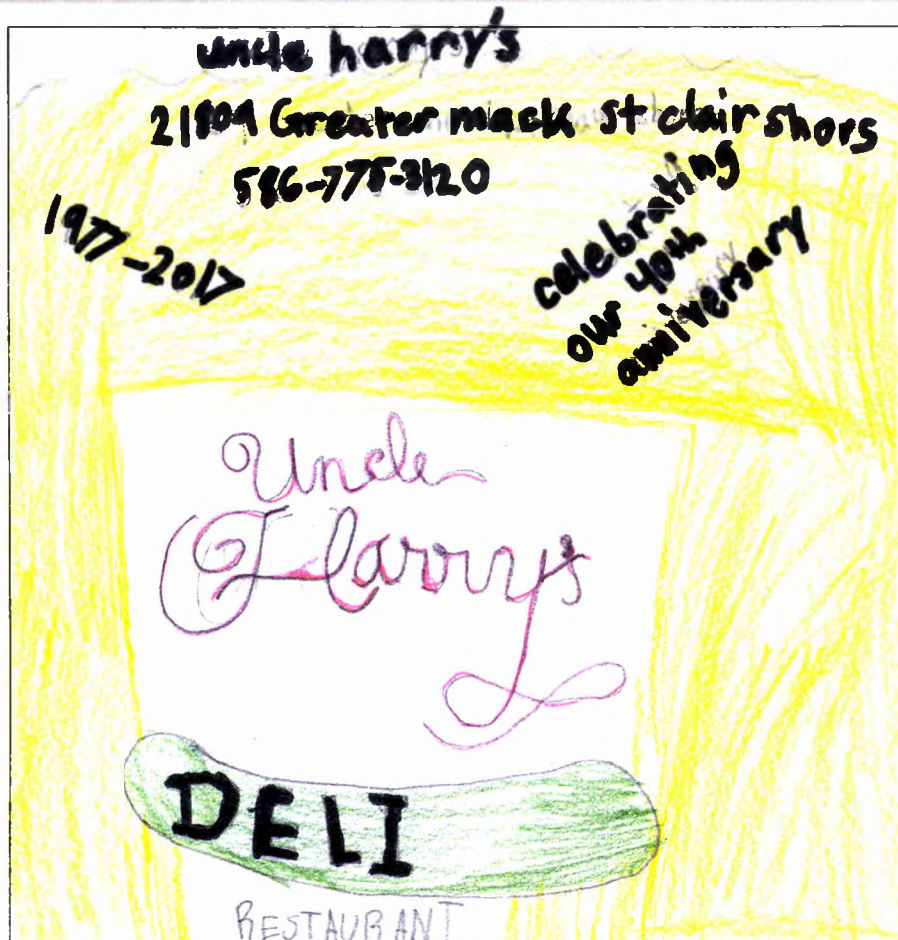 uncle harry's
21809 Greater mack st clair shors
586-775-3120
1977-2017
celebrating
our 40th
anniversary
Uncle
Harry's
DELI
RESTAURANT